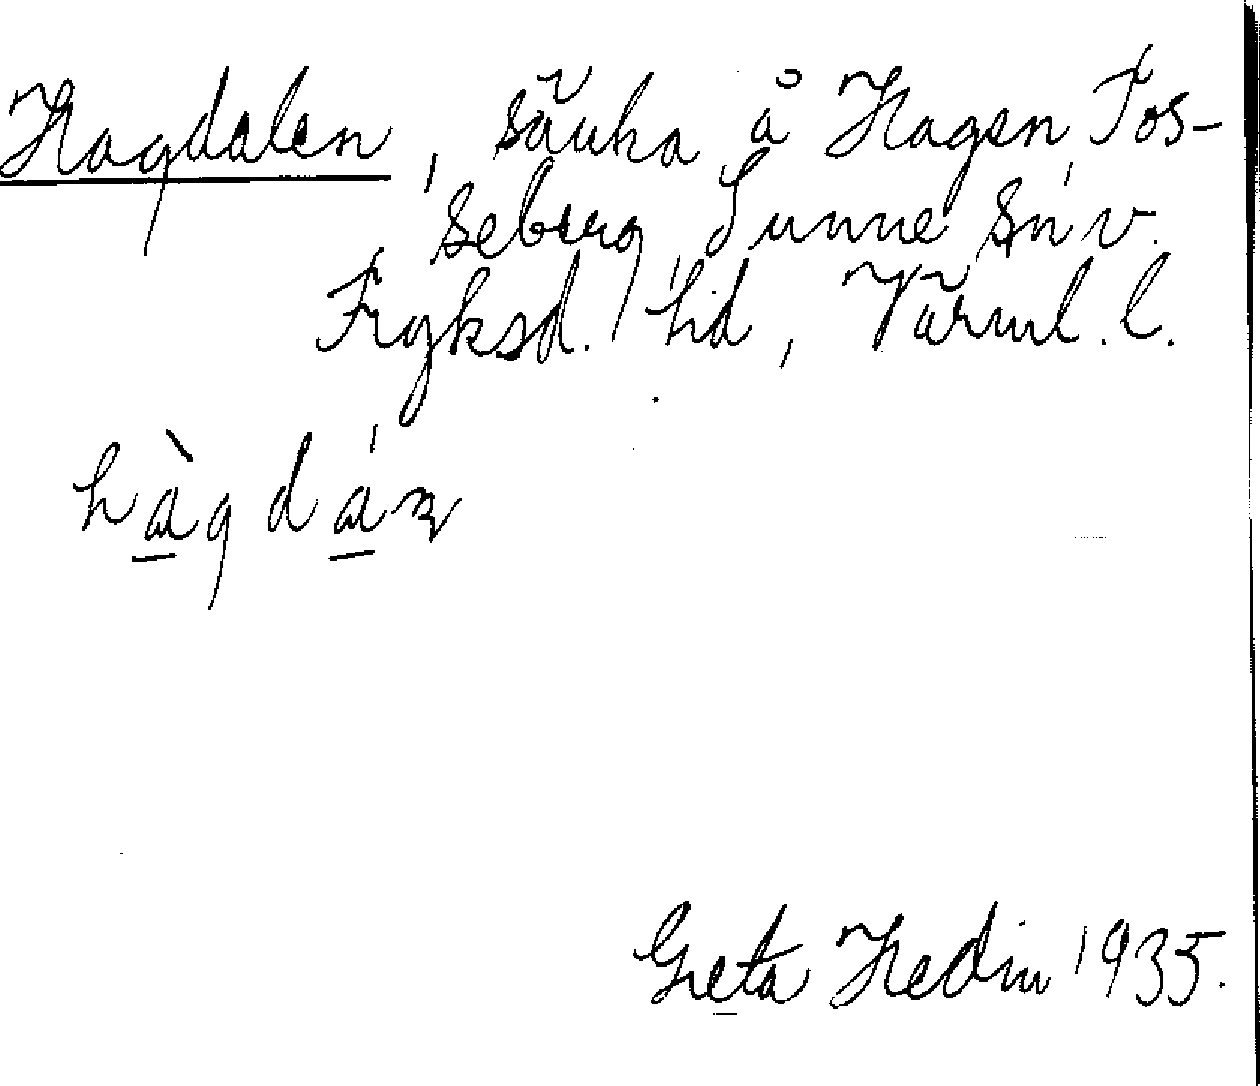 Hagdalen, sänka å Hagen, Fos-
seberg, Sunne sn v.
Fryksd. hd, Värml. l.
hàgdáṇ
Greta Hedin 1935.